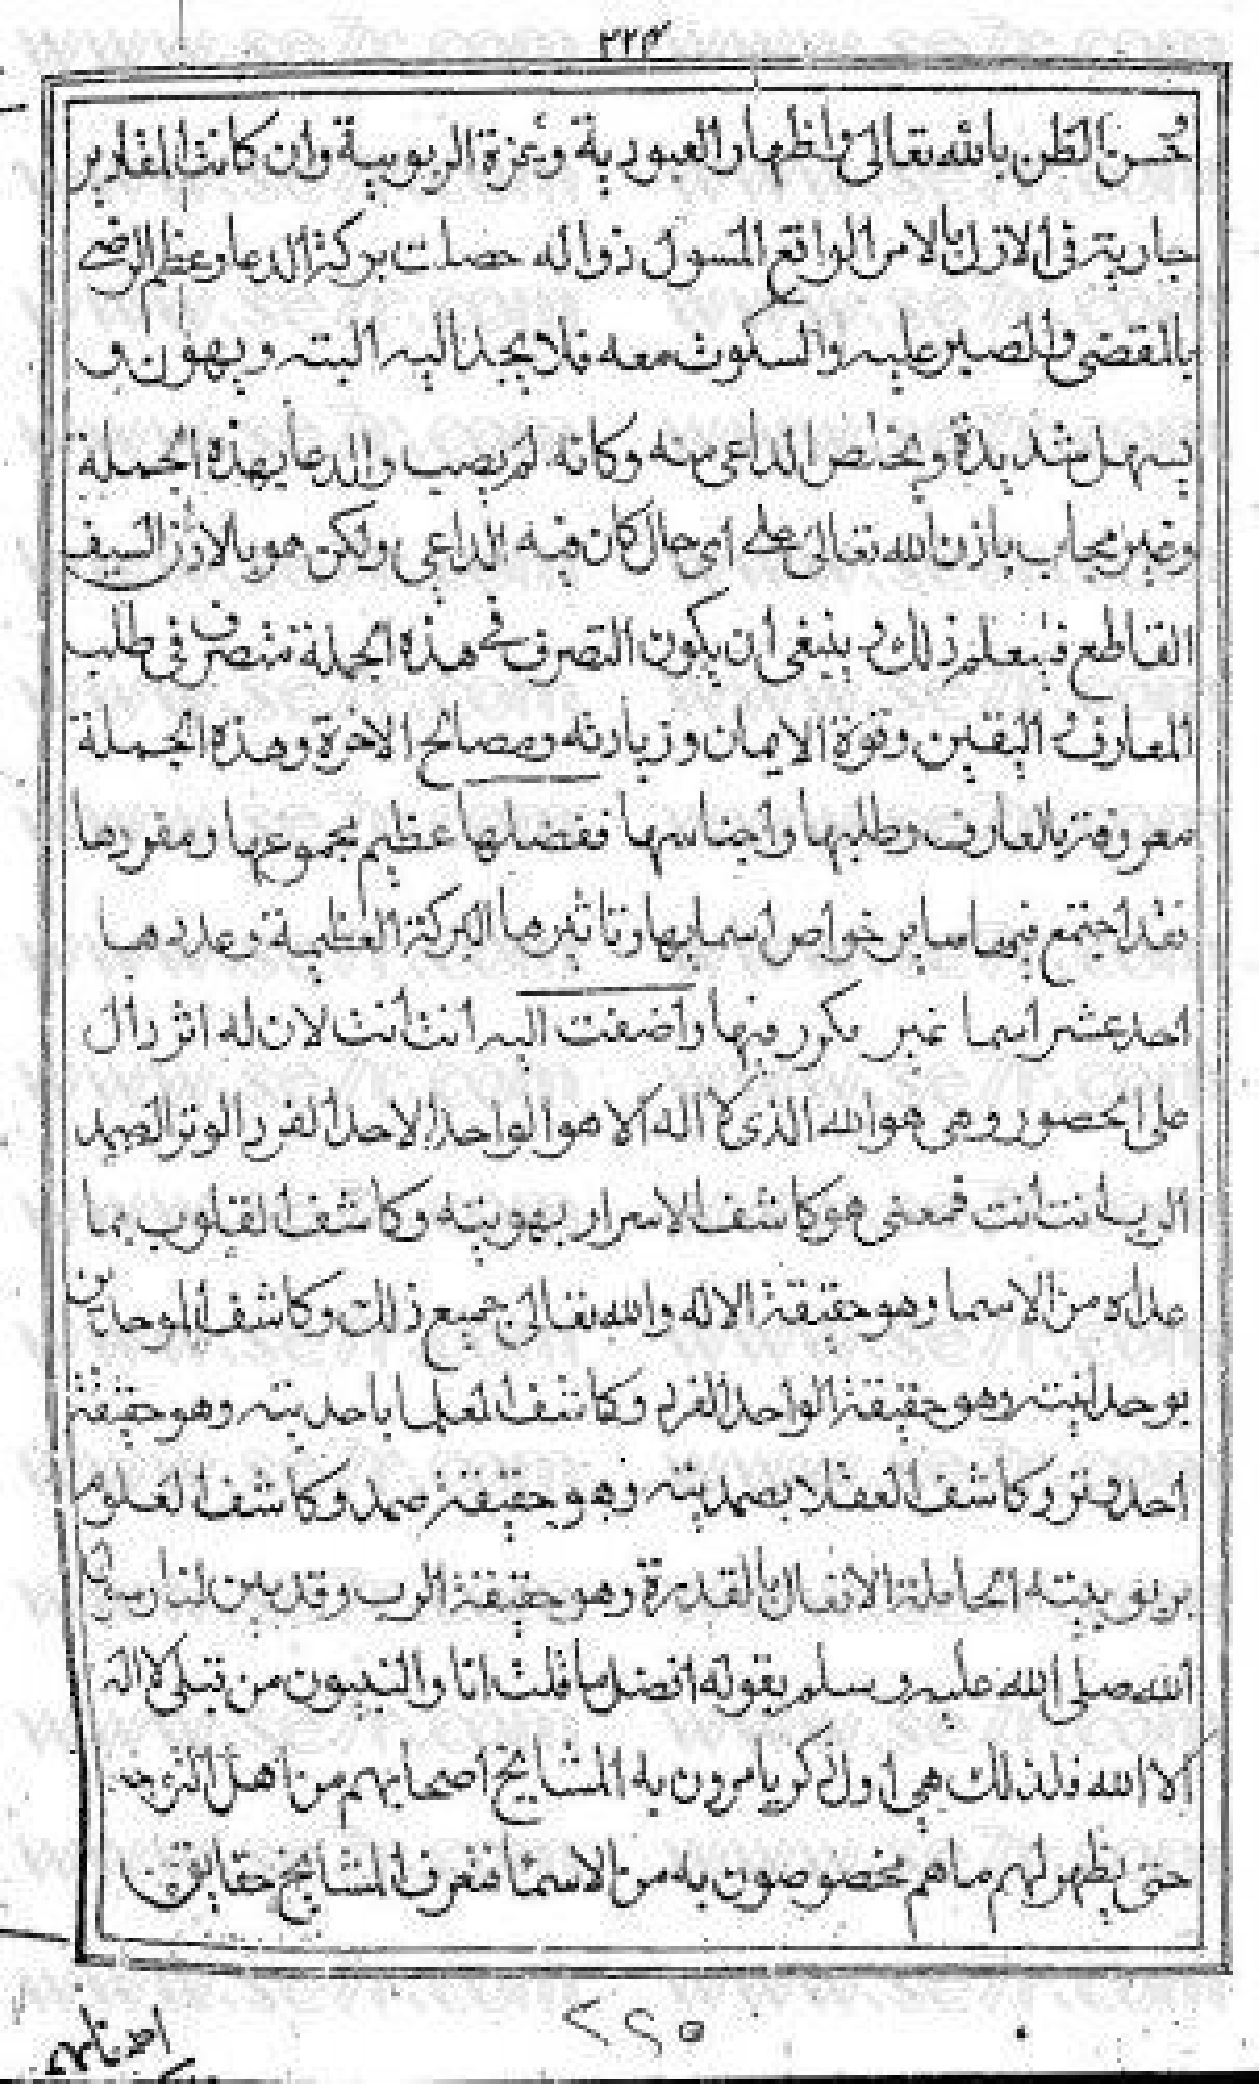 ٢٢٤
حسن الظن بالله تعالى واظهار العبودية وعزة الربوبية وان كانت المقادير
جارية فى الازل بالامر الواقع المسول زواله حصلت بركة الدعا وعظم الرضى
بالمقضى والصبر عليه والسكوت معه فلا يجد اليه البته ويهون و
يسهل شديدة ويخلص الداعى منه وكانه لم يصب والدعا بهذه الجملة
وغير مجاب باذن الله تعالى على اى حال كان فيه الداعى ولكن هو بالاذن السيف
القاطع فليعلم ذلك ينبغى ان يكون التصرف فى هذه الجملة متصرف فى طلب
المعارف اليقين وقوة الايمان وزيادته ومصالح الاخرة وهذه الجملة
معروفة بالعارف وطلبها واجناسها ففضلها عظيم مجموعها ومفردها
فقد اجتمع فيها ساير خواص اسمايها وتاثيرها البركة العظيمة وعددها
احد عشر اسما غير مكرر فيها واضفت اليه انت انت لان له اثر دال
على الحضور وهى هو الله الذى لا اله الا هو الواحد الاحد الفرد الوتر الصمد
الرب انت انت فمعنى هو كاشف الاسرار بهويته وكاشف القلوب بما
عداه من الاسما وهو حقيقة الاله والله تعالى جميع ذلك وكاشف الموحدين
بوحدانيته وهو حقيقة الواحد الفرد وكاشف العلما باحديته وهو حقيقة
احد وتر وكاشف العقلا بصمديته وهو حقيقة صمد وكاشف العلوم
بربوبيته الحاملة الافعال بالقدرة وهو حقيقة الرب وقد بين لنا رسول
الله صلى الله عليه وسلم بقوله افضل ما قلت انا والنبيون من قبلى لا اله
الا الله فلذلك هى اول ذكر يامرون به المشايخ اصحابهم من اهل التوجه
حتى يظهر لهم ما هم مخصوصون به من الاسما فتعرف المشايخ حقايق
٢٢٥